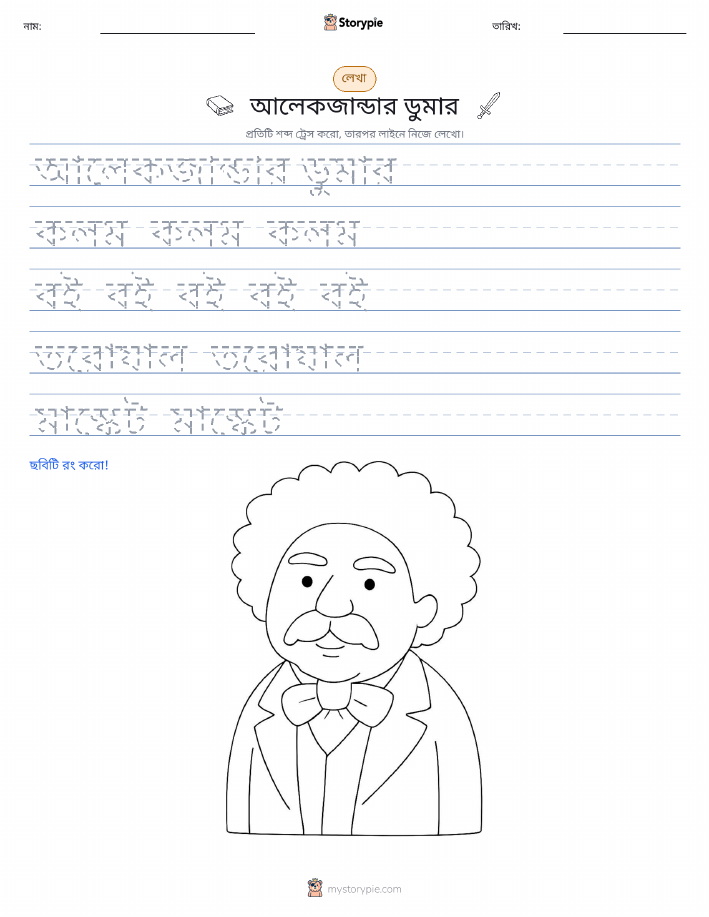 নাম:
Storypie
তারিখ:
লেখা
আলেকজান্ডার ডুমার
প্রতিটি শব্দ ট্রেস করো, তারপর লাইনে নিজে লেখো।
আলেকজান্ডার ডুমার
কলম কলম কলম
বই বই বই বই বই
তরোয়াল তরোয়াল
মাস্কেট মাস্কেট
ছবিটি রং করো!
mystorypie.com